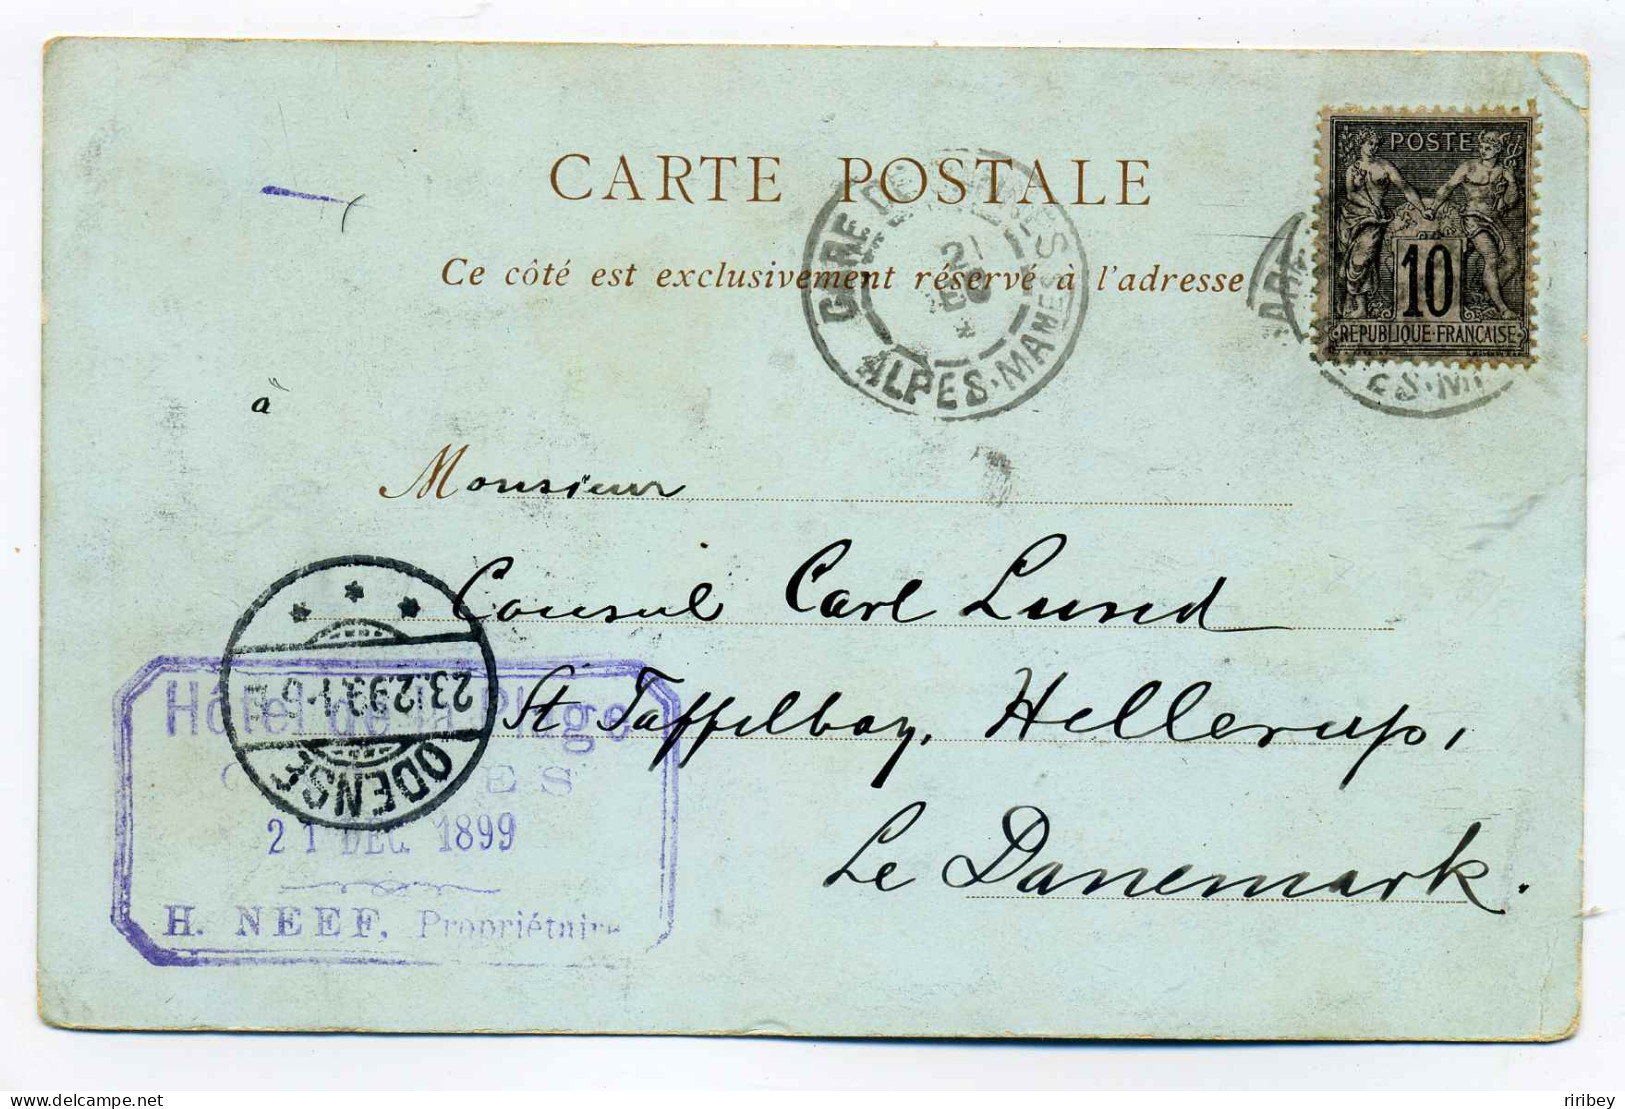 CARTE POSTALE
Ce côté est exclusivement réservé à l'adresse
POSTE
10
RÉPUBLIQUE FRANÇAISE
GARE DE CANNES
21
DEC
ALPES-MAMES
ES-M
à
Monsieur
Consul Carl Lund
St Taffelbay, Hellerup,
Le Danemark.
23.12.99.
ODENSE
Hôtel de la Plage
CANNES
21 DEC. 1899
H. NEEF, Propriétaire
riribey